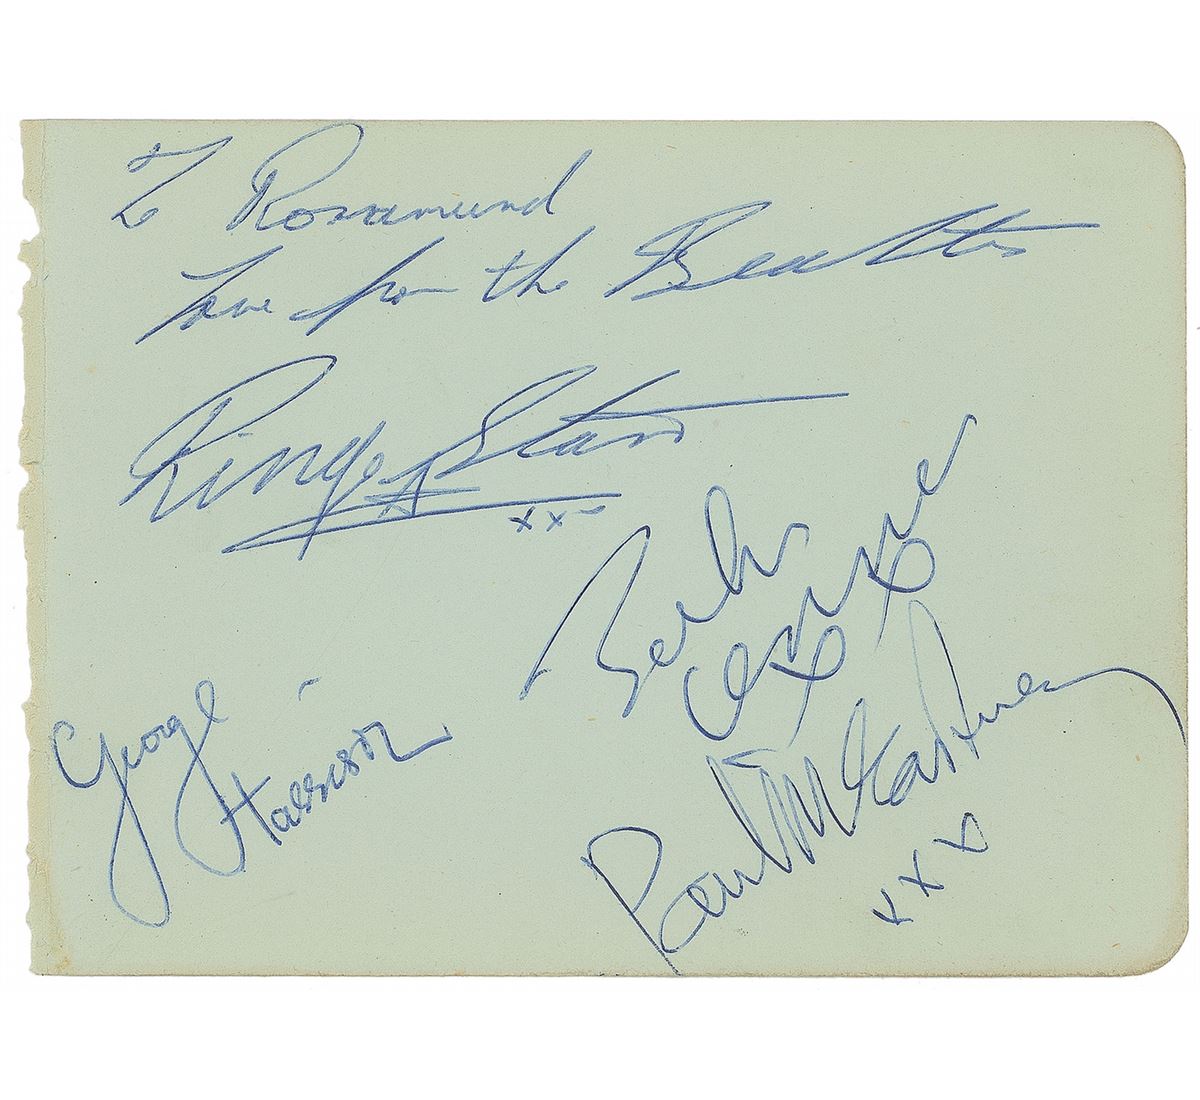 To Rosamund
love from the Beatles
Ringo Starr
xxx
George
Harrison
Paul McCartney
xxx